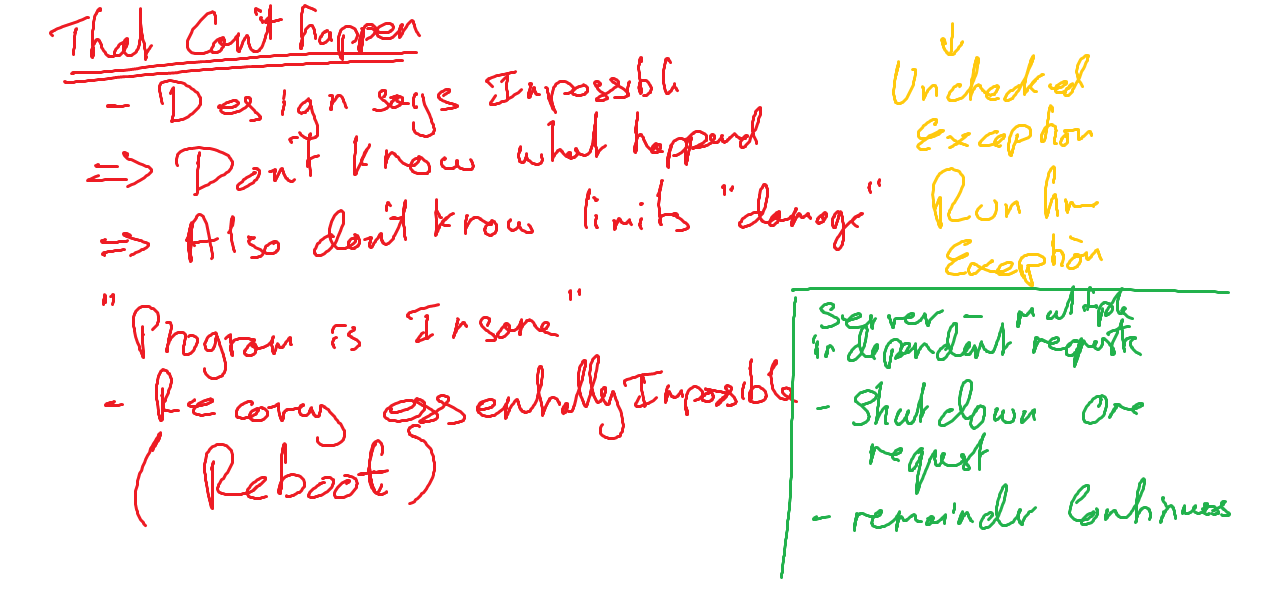 That Can't happen
- Design says Impossible
=> Don't know what happened
=> Also don't know limits "damage"
"Program is Insane"
- Recovery essentially Impossible
(Reboot)
↓
Unchecked
Exception
Runtime
Exeption
Server - multiple
independent requests
- Shutdown one
request
- remainder Continues